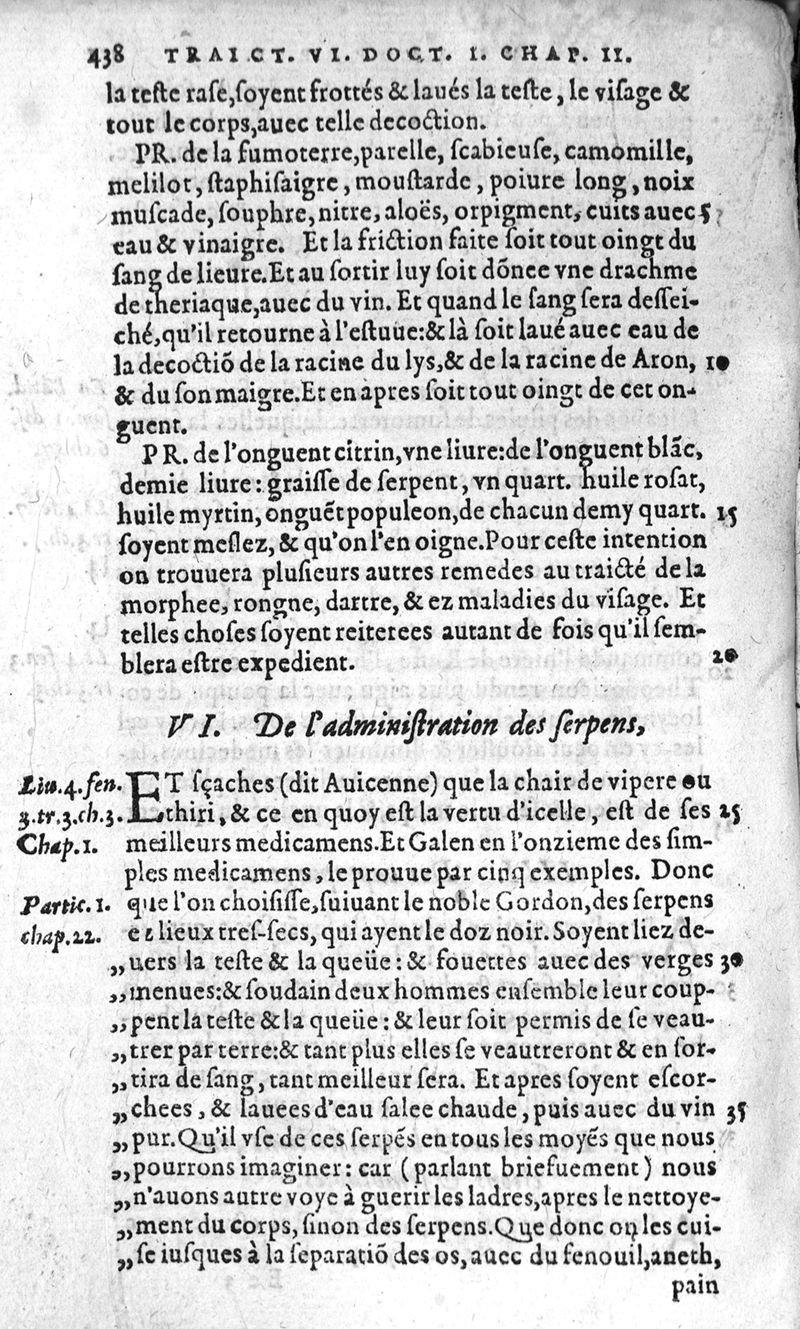 438 TRAICT. VI. DOCT. I. CHAP. II.
la teſte raſe,ſoyent frottés & laués la teſte, le viſage &
tout le corps,auec telle decoction.
PR. de la fumoterre,parelle, ſcabieuſe, camomille,
melilot, ſtaphiſaigre, mouſtarde, poiure long, noix
muſcade, ſouphre, nitre, aloës, orpigment, cuits auec 5
eau & vinaigre. Et la friction faite ſoit tout oingt du
ſang de lieure.Et au ſortir luy ſoit dõnee vne drachme
de theriaque,auec du vin. Et quand le ſang ſera deſſei-
ché,qu'il retourne à l'eſtuue:& là ſoit laué auec eau de
la decoctiõ de la racine du lys,& de la racine de Aron, 10
& du ſon maigre.Et en apres ſoit tout oingt de cet on-
guent.
PR. de l'onguent citrin,vne liure:de l'onguent blãc,
demie liure: graiſſe de ſerpent, vn quart. huile roſat,
huile myrtin, onguẽt populeon,de chacun demy quart. 15
ſoyent meſlez, & qu'on l'en oigne.Pour ceſte intention
on trouuera pluſieurs autres remedes au traicté de la
morphee, rongne, dartre, & ez maladies du viſage. Et
telles choſes ſoyent reiterees autant de fois qu'il ſem-
blera eſtre expedient. 20
VI. De l'adminiſtration des ſerpens,
Liu.4.fen. ET ſçaches (dit Auicenne) que la chair de vipere ou
3.tr.3.ch.3. thiri, & ce en quoy eſt la vertu d'icelle, eſt de ſes 25
Chap.1. meilleurs medicamens.Et Galen en l'onzieme des ſim-
ples medicamens, le prouue par cinq exemples. Donc
Partic.1. que l'on choiſiſſe,ſuiuant le noble Gordon,des ſerpens
chap.22. ez lieux tres-ſecs, qui ayent le doz noir. Soyent liez de-
„uers la teſte & la queüe: & fouettes auec des verges 30
„menues:& ſoudain deux hommes enſemble leur coup-
„pent la teſte & la queüe: & leur ſoit permis de ſe veau-
„trer par terre:& tant plus elles ſe veautreront & en ſor-
„tira de ſang, tant meilleur ſera. Et apres ſoyent eſcor-
„chees, & lauees d'eau ſalee chaude, puis auec du vin 35
„pur.Qu'il vſe de ces ſerpẽs en tous les moyẽs que nous
„pourrons imaginer: car (parlant briefuement) nous
„n'auons autre voye à guerir les ladres,apres le nettoye-
„ment du corps, ſinon des ſerpens.Que donc on les cui-
„ſe iuſques à la ſeparatiõ des os, auec du fenouil,aneth,
pain